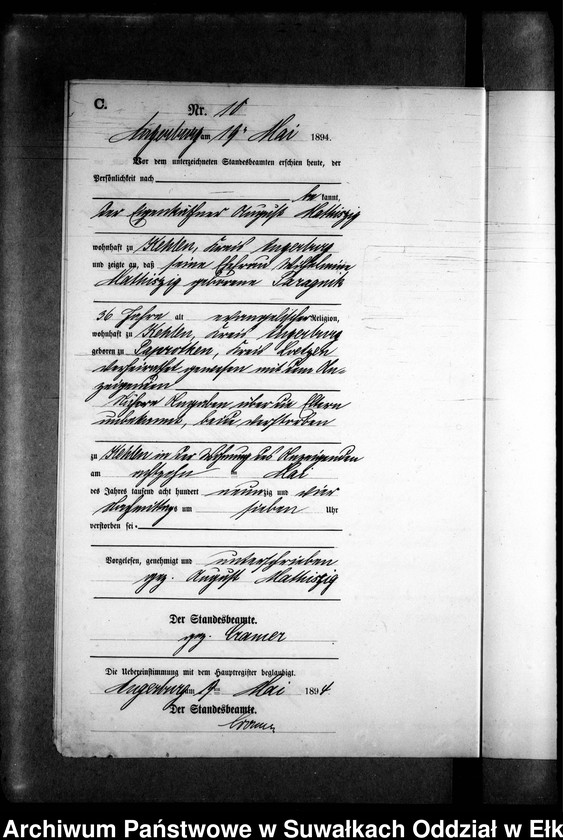 C.
Nr. 10
Angerburg am 19. Mai 1894.
Vor dem unterzeichneten Standesbeamten erschien heute, der
Persönlichkeit nach
be kannt,
der Eigenkäthner August Mathiszig
wohnhaft zu Kehlen, Kreis Angerburg
und zeigte an, daß seine Ehefrau Wilhelmine
Mathiszig geborene Paragnik
36 Jahre alt evangelischer Religion,
wohnhaft zu Kehlen, Kreis Angerburg
geboren zu Paprotken, Kreis Loetzen
verheirathet gewesen mit dem An-
zeigenden
Nähere Angaben über die Eltern
unbekannt, beide verstorben
zu Kehlen in der Wohnung des Anzeigenden
am achtzehn ten Mai
des Jahres tausend acht hundert neunzig und vier
Nachmittags um sieben Uhr
verstorben sei.
Vorgelesen, genehmigt und unterschrieben
gez. August Mathiszig
Der Standesbeamte.
gez. Cramer
Die Uebereinstimmung mit dem Hauptregister beglaubigt.
Angerburg am 19 ten Mai 1894
Der Standesbeamte.
Cramer
Archiwum Państwowe w Suwałkach Oddział w Ełk